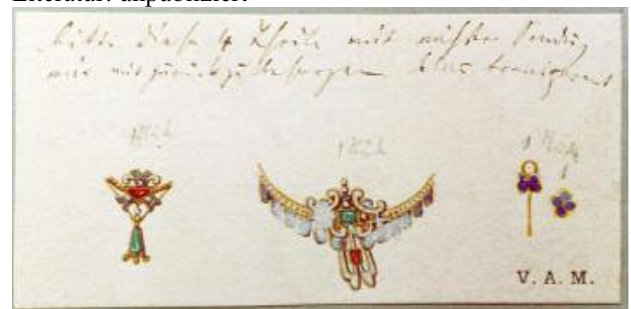 Literatur: unpubliziert
bitte diese 4 Theile mit nächster Sendung
mir mit zurück zu besorgen blau transparent
1 Stück 1 Stück 1 Stück
1
V. A. M.